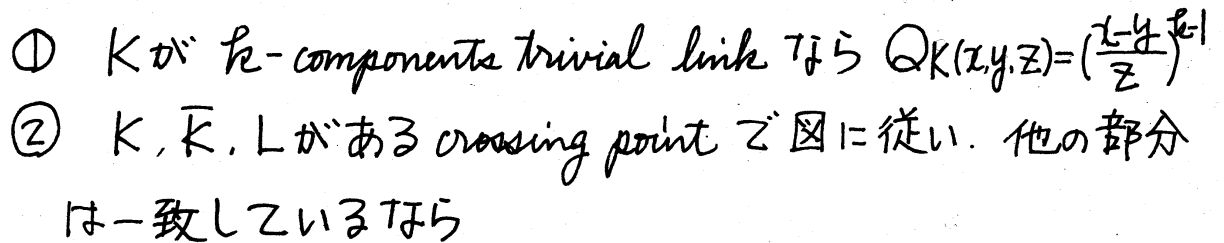 ① Kが k-components trivial link なら Q_K(x,y,z)=(\frac{x-y}{z})^{k-1}
② K, \overline{K}, Lがある crossing point で図に従い. 他の部分
は一致しているなら